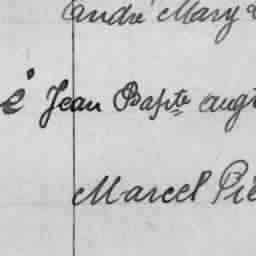 André Mary
é Jean Bapte Augt
Marcel Pie